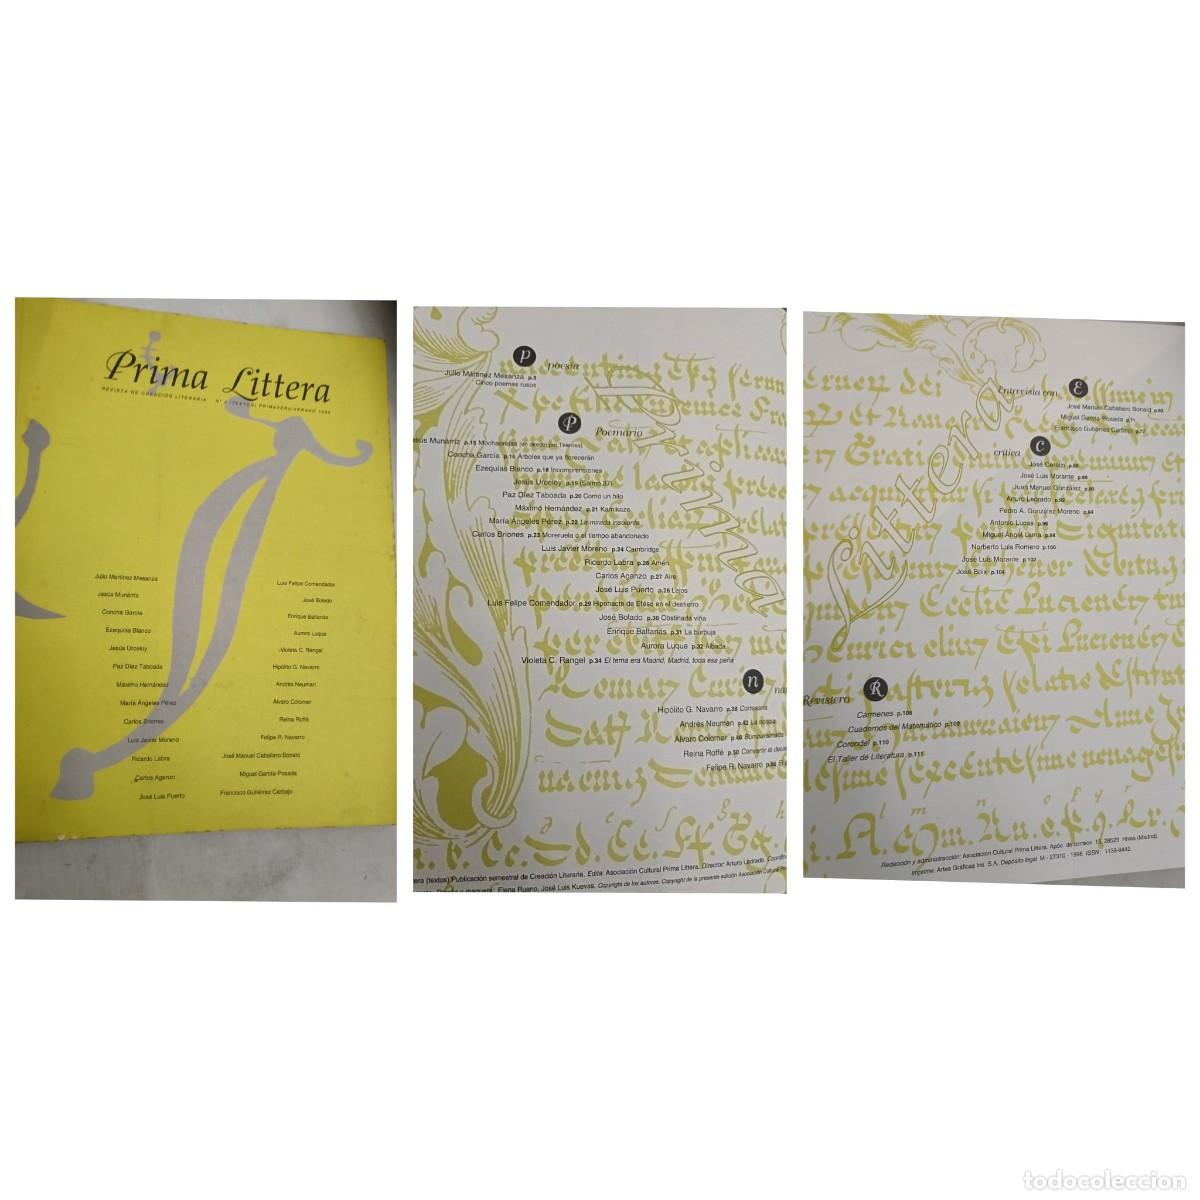 Prima Littera
REVISTA DE CREACIÓN LITERARIA
PRIMAVERA/VERANO
Julio Martínez Mesanza
Jesús Munárriz
Concha García
Ezequías Blanco
Jesús Urceloy
Paz Díez Taboada
Máximo Hernández
María Ángeles Pérez
Carlos Briones
Luis Javier Moreno
Ricardo Labra
Carlos Aganzo
José Luis Puerto
Luis Felipe Comendador
José Bolado
Enrique Baltanás
Aurora Luque
Violeta C. Rangel
Hipólito G. Navarro
Andrés Neuman
Álvaro Colomer
Reina Roffé
Felipe R. Navarro
José Manuel Caballero Bonald
Miguel García-Posada
Francisco Gutiérrez Carbajo
P poesía
Julio Martínez Mesanza p.5
Cinco poemas rusos
P Poemario
Jesús Munárriz p.15 (en directo por Televisa)
Concha García p.16 Árboles que ya florecerán
Ezequías Blanco p.18 Incomprensiones
Jesús Urceloy p.19 (Salmo 37)
Paz Díez Taboada p.20 Como un hilo
Máximo Hernández p.21 Kamikaze
María Ángeles Pérez p.22 La mirada insolente
Carlos Briones p.23 Moreruela o el tiempo abandonado
Luis Javier Moreno p.24 Cambridge
Ricardo Labra p.26 Amén
Carlos Aganzo p.27 Aire
José Luis Puerto p.28 Lejos
Luis Felipe Comendador p.29 Hiponacte de Efeso en el destierro
José Bolado p.30 Obstinada viña
Enrique Baltanás p.31 La burbuja
Aurora Luque p.32 Albada
Violeta C. Rangel p.34 El tema era Madrid, Madrid, toda esa peña
n na
Hipólito G. Navarro p.38
Andrés Neuman p.42
Álvaro Colomer p.46
Reina Roffé p.50 Convertir el
Felipe R. Navarro p.56
(textos) Publicación semestral de Creación Literaria. Edita: Asociación Cultural Prima Littera. Director: Arturo Ledrado.
Elena Ruano, José Luis Kuevas. Copyright de los autores. Copyright de la presente edición Asociación Cultural
Prima
Littera
Entrevista con E
José Manuel Caballero Bonald p.63
Miguel García-Posada p.71
Francisco Gutiérrez Carbajo p.77
crítica C
José Cereijo p.86
José Luis Morante p.88
Juan Manuel González p.90
Arturo Ledrado p.92
Pedro A. González Moreno p.94
Antonio Lucas p.96
Miguel Ángel Lama p.98
Norberto Luis Romero p.100
José Luis Morante p.102
José Boix p.104
Revistero R
Cármenes p.108
Cuadernos del Matemático p.109
Corondel p.110
El Taller de Literatura p.111
Redacción y administración: Asociación Cultural Prima Littera. Apdo. de correos 13. 28529 Rivas (Madrid).
Imprime: Artes Gráficas Iris S.A. Depósito legal: M.- 27310 - 1998. ISSN:
todocoleccion